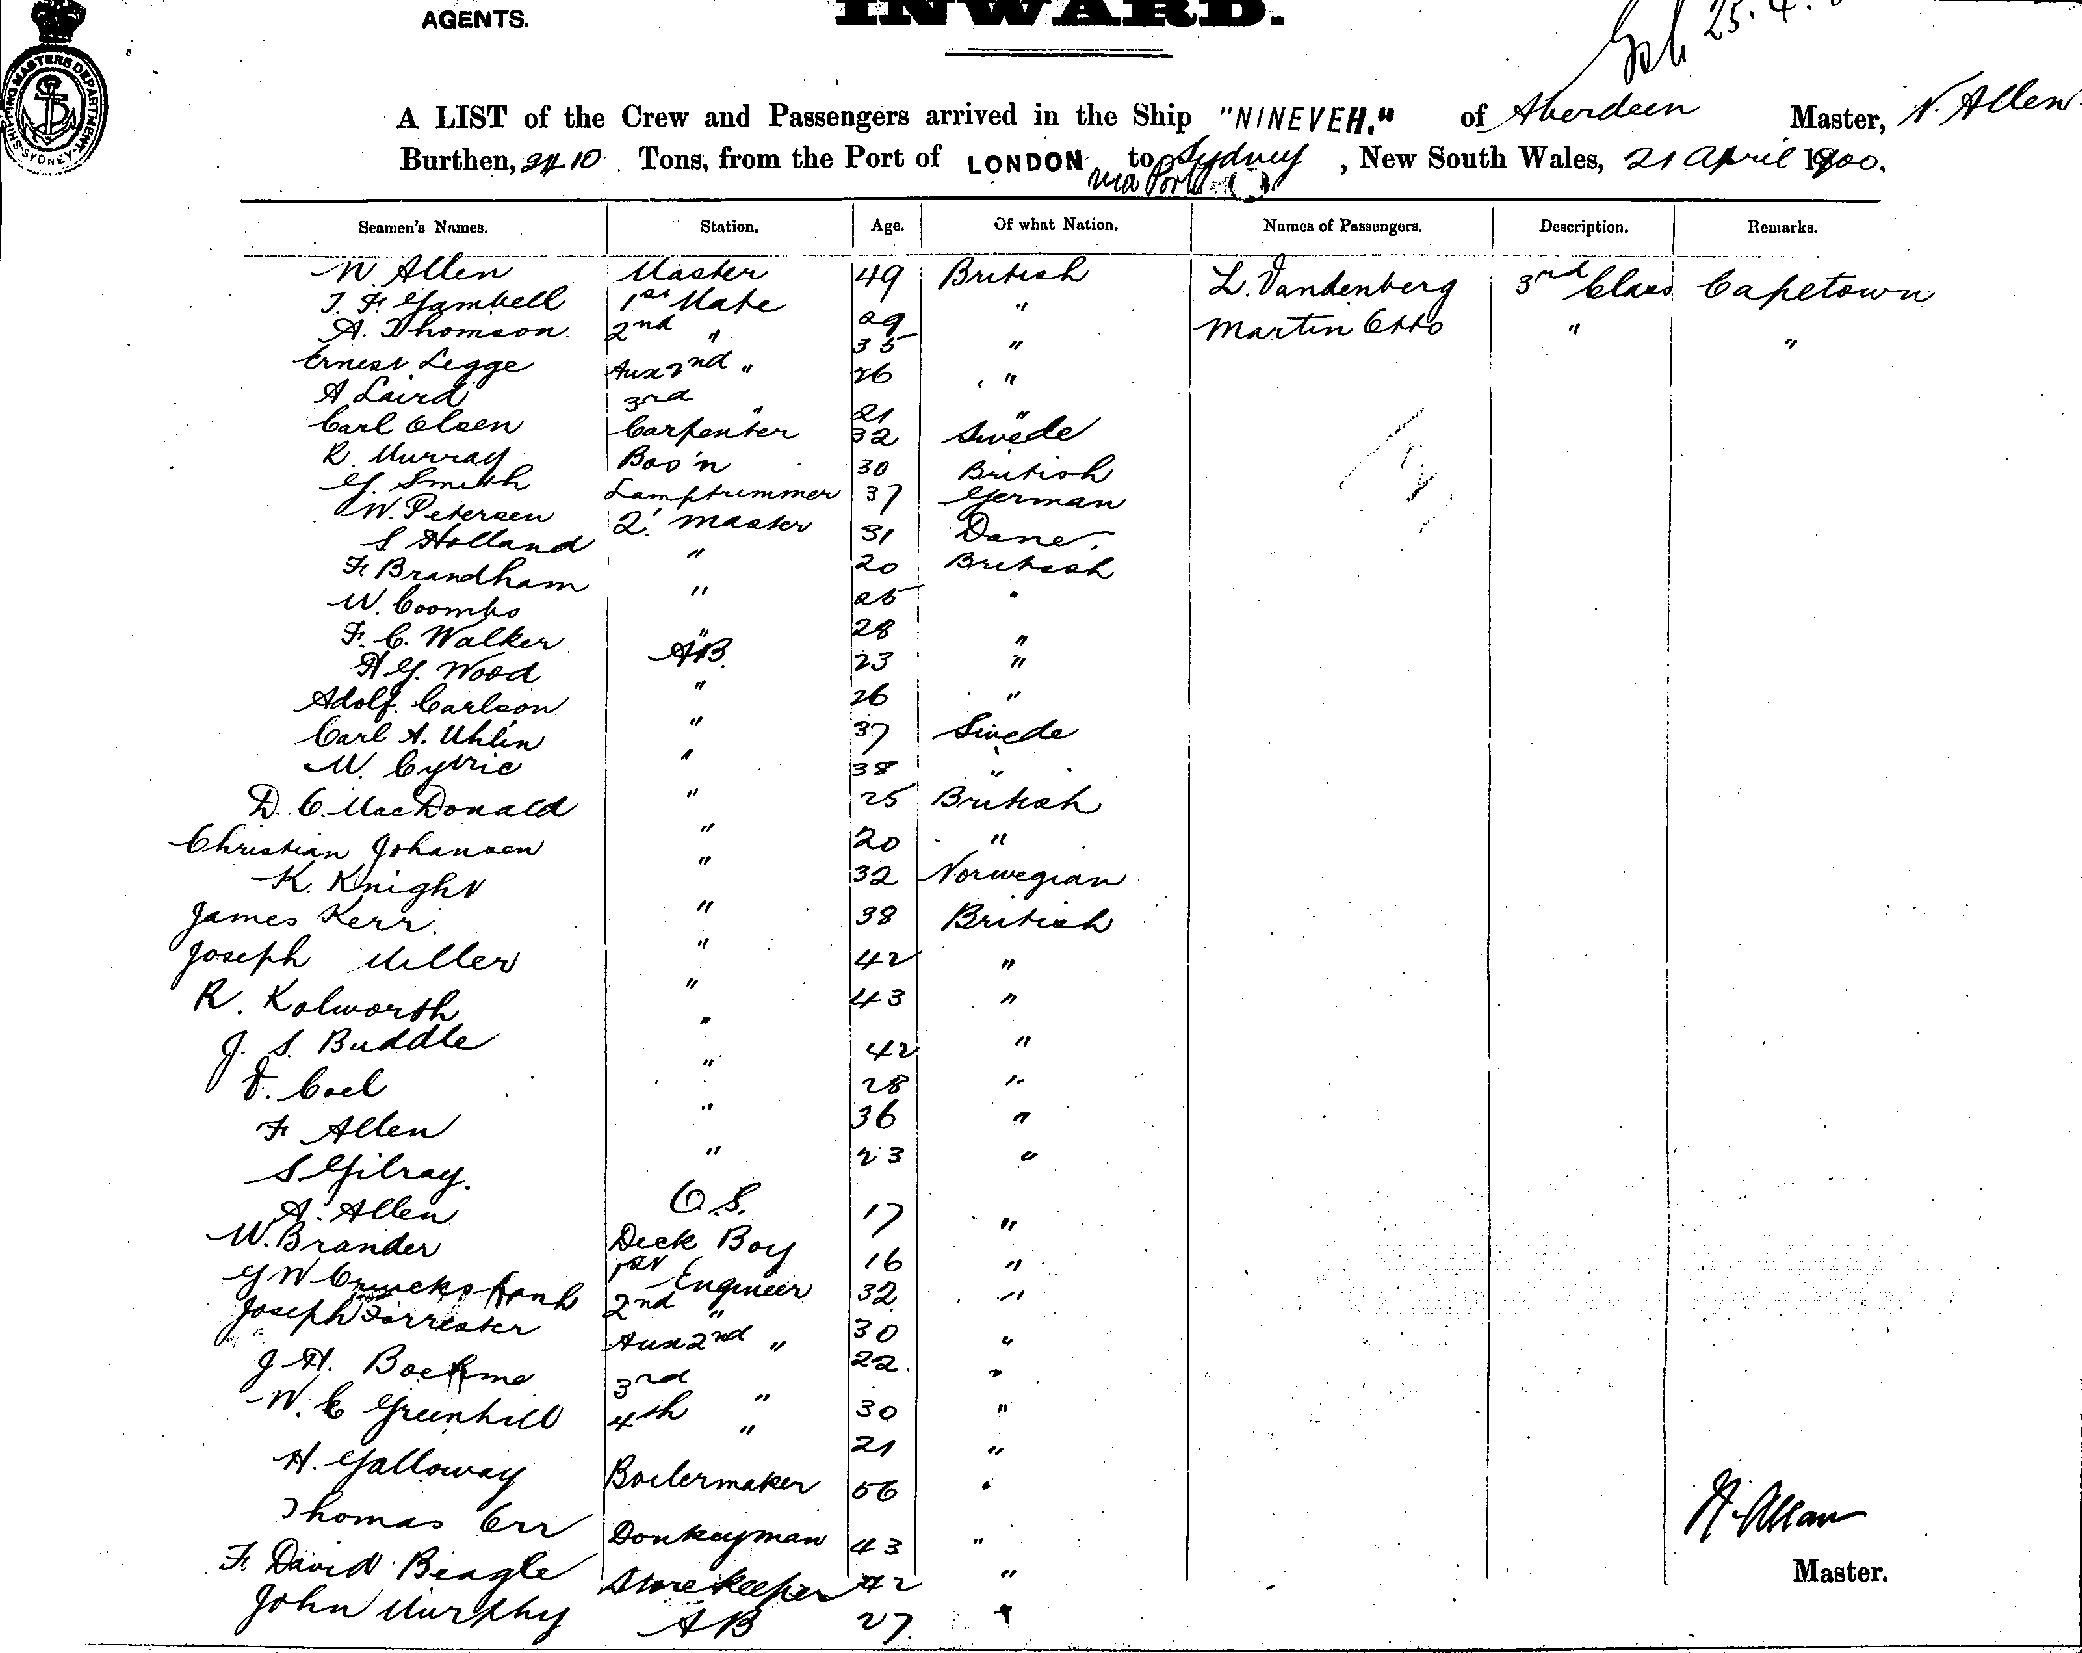 AGENTS.
INWARD.
25. 4.
SHIPPING MASTERS DEPARTMENT
SYDNEY
A LIST of the Crew and Passengers arrived in the Ship "NINEVEH." of Aberdeen Master, N. Allen
Burthen, 2410 Tons, from the Port of LONDON to Sydney, New South Wales, 21 April 1900.
via Port
Seamen's Names. Station. Age. Of what Nation. Names of Passengers. Description. Remarks.
N. Allen Master 49 British L. Vandenberg 3rd Class Capetown
T. F. Gambell 1st Mate 29 " Martin Otto " "
A. Thomson 2nd " 35 "
Ernest Legge Aux 2nd " 26 "
A Laird 3rd " 21 "
Carl Olsen Carpenter 32 Swede
R. Murray Bos'n 30 British
G. Smith Lamptrimmer 37 German
W. Petersen 2. Master 31 Dane.
S Holland " 20 British
F. Brandham " 25 "
W. Coombs " 28 "
F. C. Walker AB. 23 "
H G. Wood " 26 "
Adolf Carlson " 37 Swede
Carl A. Uhlin " 38 "
W. " 25 British
D. C. MacDonald " 20 "
Christian Johansen " 32 Norwegian
K. Knight " 38 British
James Kerr " 42 "
Joseph Miller " 43 "
R. Kolworth "
J. S. Buddle " 42 "
Coel " 28 "
F Allen " 36 "
S Gilray. " 23 "
A. Allen O.S. 17 "
W. Brander Deck Boy 16 "
G W Cruickshank 1st Engineer 32 "
Joseph Forrester 2nd " 30 "
J. H. Boehme Aux 2nd " 22. "
W. C Greenhill 3rd " 30 "
H. Galloway 4th " 21 "
Thomas Orr Boilermaker 56 "
F. David Beagle Donkeyman 43 "
John Murphy Storekeeper 42 "
AB 27. "
N. Allan
Master.